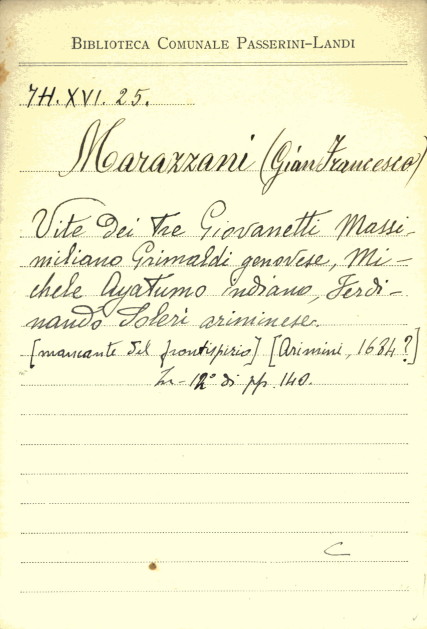 BIBLIOTECA COMUNALE PASSERINI-LANDI
7H.XVI.25.
Marazzani (GianFrancesco)
Vite dei tre Giovanetti Massi-
miliano Grimaldi genovese, Mi-
chele Ayatumo indiano, Ferdi-
nando Soleri ariminese.
[mancante del frontispizio] [Arimini, 1684?]
In-12° di pp. 140.
C